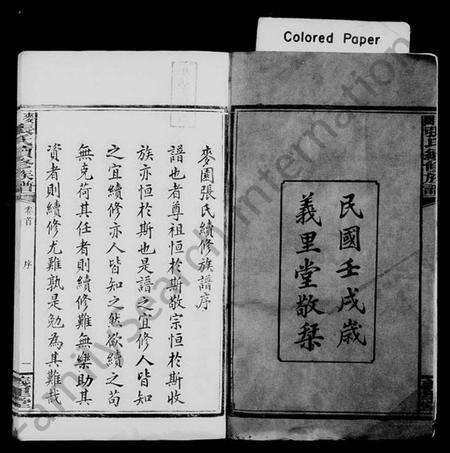 Colored Paper
民國壬戌歲
義里堂敬栞
麥園張氏續修族譜序
譜也者尊祖恒於斯敬宗恒於斯收
族亦恒於斯也是譜之宜修人皆知
之宜續修亦人皆知之然欲續之苟
無克荷其任者則續修難無樂助其
資者則續修尤難孰是勉為其難哉
張氏續修族譜
卷首
序
一
FamilySearch International